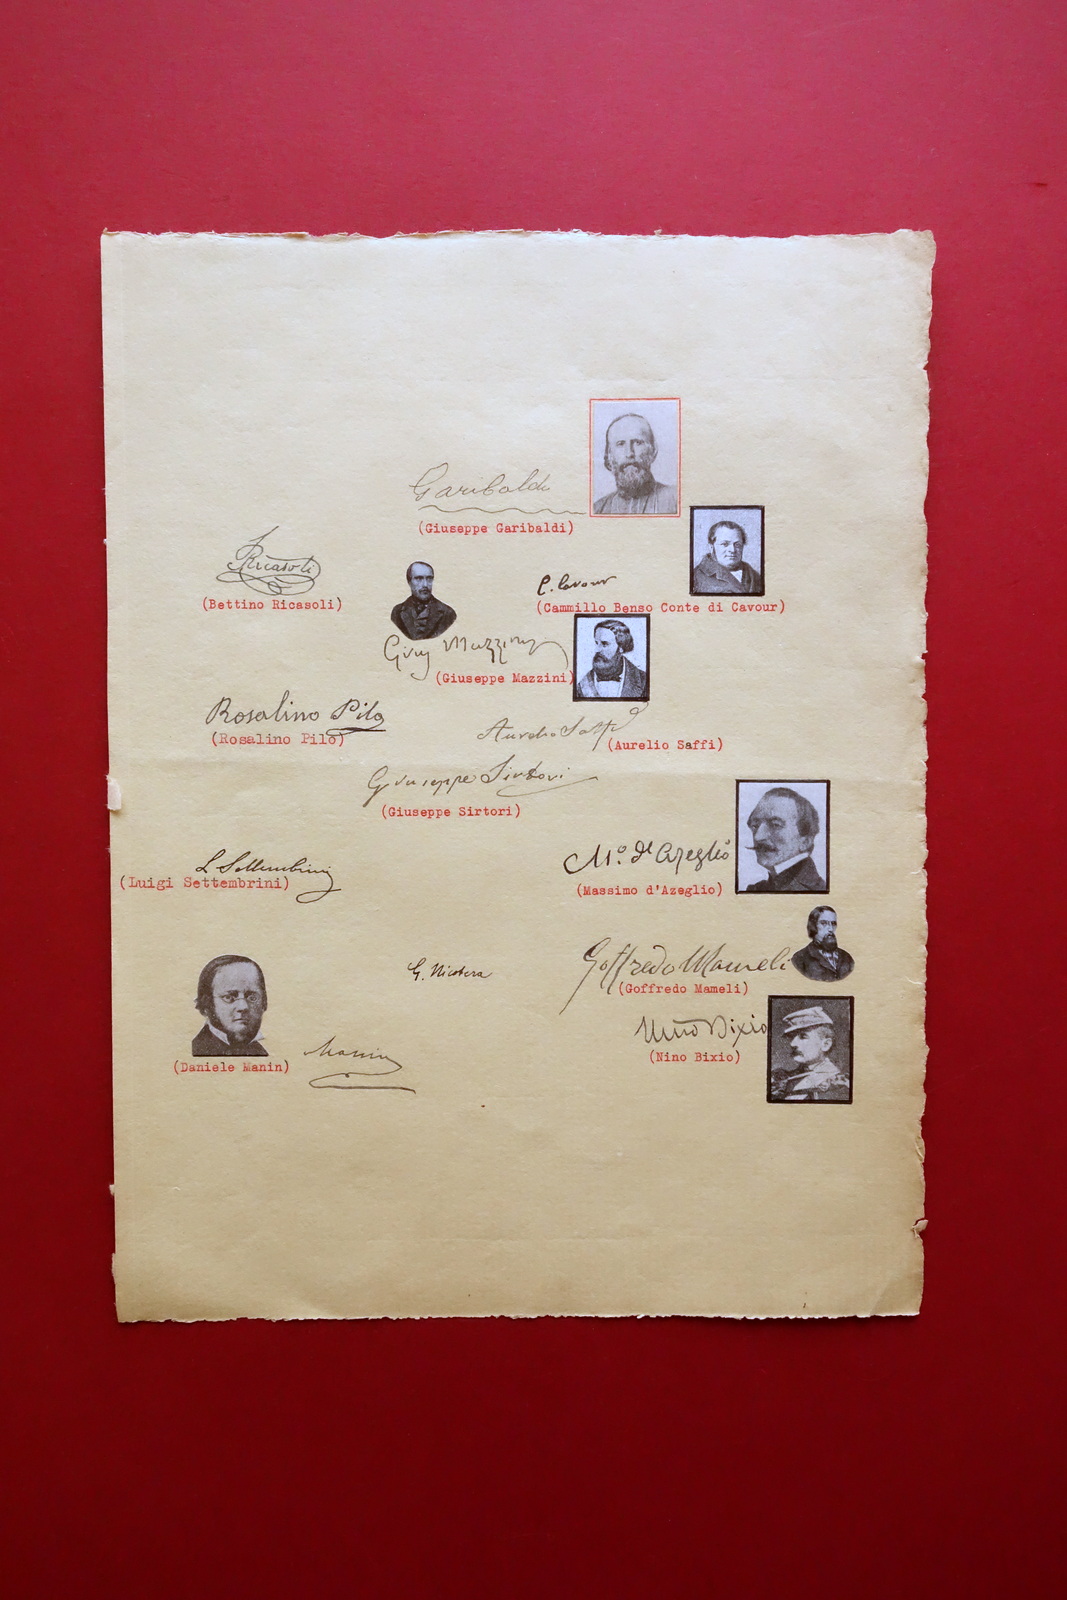 Garibaldi
(Giuseppe Garibaldi)
Ricasoli
(Bettino Ricasoli)
C. Cavour
(Cammillo Benso Conte di Cavour)
Gius Mazzini
(Giuseppe Mazzini)
Rosalino Pilo
(Rosalino Pilo)
Aurelio Saffi
(Aurelio Saffi)
Giuseppe Sirtori
(Giuseppe Sirtori)
L Settembrini
(Luigi Settembrini)
Mo. d'Azeglio
(Massimo d'Azeglio)
G. Nicotera
Goffredo Mameli
(Goffredo Mameli)
Nino Bixio
(Nino Bixio)
Manin
(Daniele Manin)